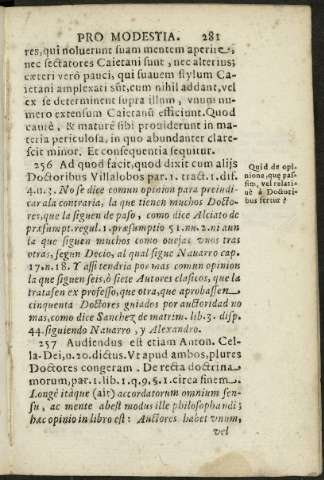 PRO MODESTIA. 281
res, qui noluerunt suam mentem aperire,
nec sectatores Caietani sunt, nec alterius;
cæteri verò pauci, qui suauem stylum Ca-
ietani amplexati sũt, cum nihil addant, vel
ex se determinent supra illum, vnum nu-
mero extensum Caietanũ efficiunt. Quod
cautè, & maturè sibi prouiderunt in ma-
teria periculosa, in quo abundanter clare-
scit minor. Et consequentia sequitur.
256 Ad quod facit, quod dixit cum alijs
Doctoribus Villalobos par. 1. tract. 1. dif.
4. n. 3. No se dice comun opinion para preiudi-
car ala contraria, la que tienen muchos Docto-
res, que la siguen de paso, como dice Alciato de
præsumpt. regul. 1. præsumptio 51. nu. 2. ni aun
la que siguen muchos como ouejas vnos tras
otras, segun Decio, al qual sigue Nauarro cap.
17. n. 18. Y assi tendria por mas comun opinion
la que siguen seis, ò siete Autores clasicos, que la
tratasen ex professo, que otra, que aprobassen
cinquenta Doctores guiados por auctoridad no
mas, como dice Sanchez de matrim. lib. 3. disp.
44. siguiendo Nauarro, y Alexandro.
257 Audiendus est etiam Anton. Cel-
la-Dei, n. 20. dictus. Vt apud ambos, plures
Doctores congeram. De recta doctrina
morum, par. 1. lib. 1. q. 9. §. 1. circa finem.
Longè itàque (ait) accordatorum omnium sen-
su, ac mente abest modus ille philosophandi;
hæc opinio in libro est: Auctores habet vnum,
vel
Quid de opi-
nione, que pas-
sim, vel relati-
uè à Doctori-
bus fertur?